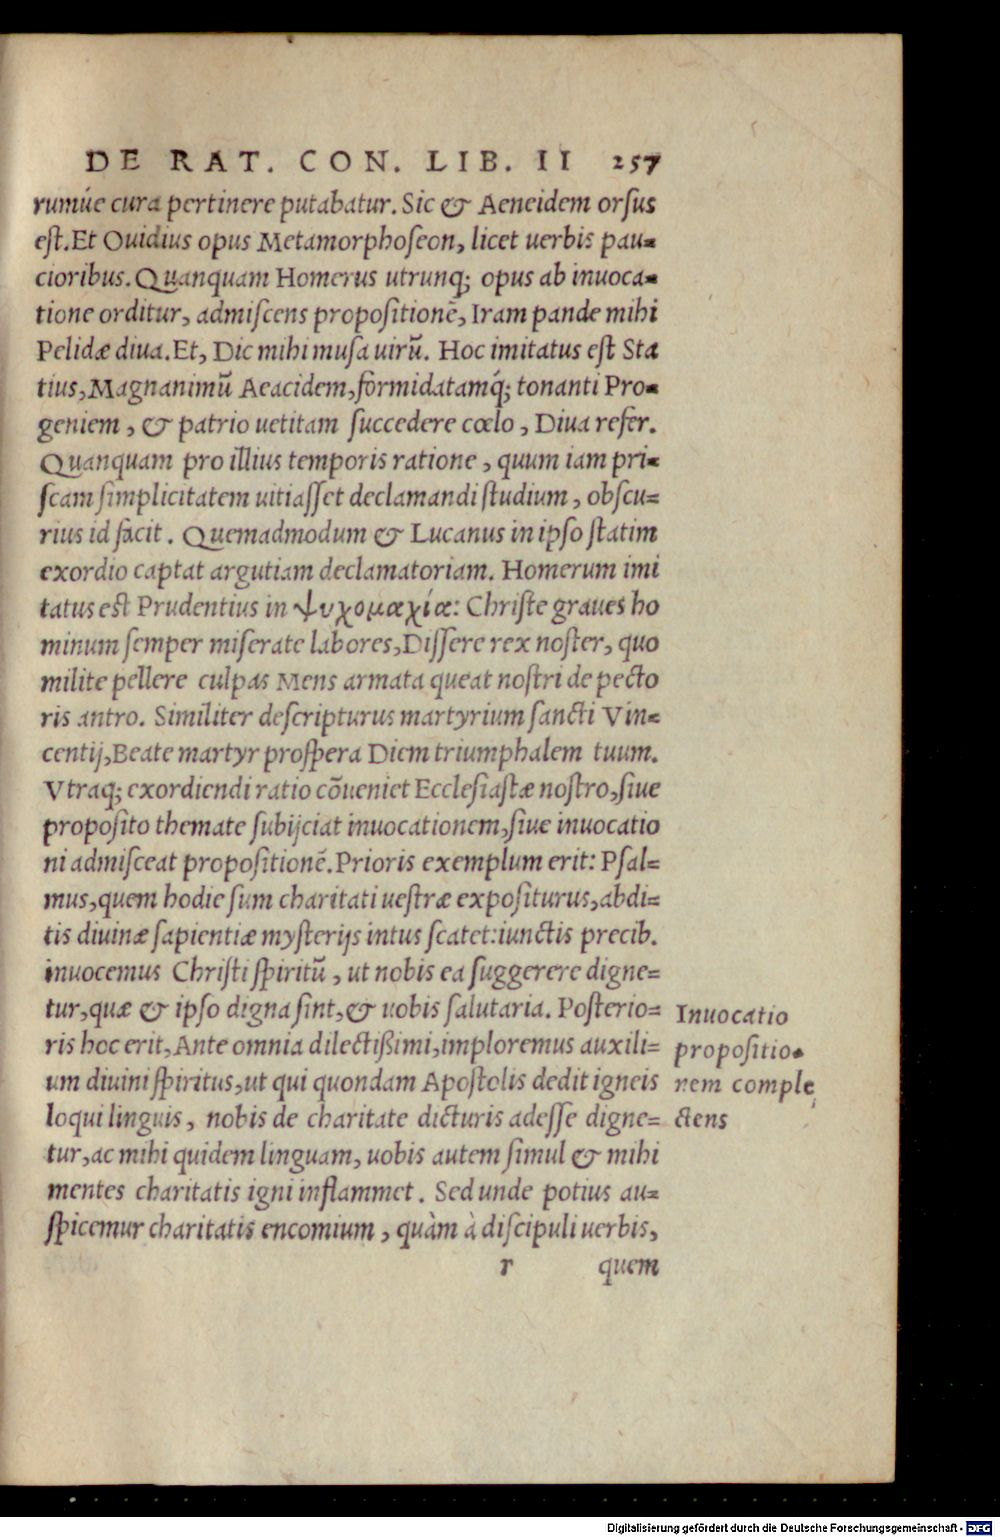 DE RAT. CON. LIB. II 257
rumúe cura pertinere putabatur. Sic & Aeneidem orsus
est. Et Ouidius opus Metamorphoseon, licet uerbis pau=
cioribus. Quanquam Homerus utrunq; opus ab inuoca=
tione orditur, admiscens propositionẽ, Iram pande mihi
Pelidæ diua. Et, Dic mihi musa uirũ. Hoc imitatus est Sta
tius, Magnanimũ Aeacidem, formidatamq́; tonanti Pro=
geniem, & patrio uetitam succedere cœlo, Diua refer.
Quanquam pro illius temporis ratione, quum iam pri=
scam simplicitatem uitiasset declamandi studium, obscu=
rius id facit. Quemadmodum & Lucanus in ipso statim
exordio captat argutiam declamatoriam. Homerum imi
tatus est Prudentius in ψυχομαχία: Christe graues ho
minum semper miserate labores, Dissere rex noster, quo
milite pellere culpas Mens armata queat nostri de pecto
ris antro. Similiter descripturus martyrium sancti Vin=
centij, Beate martyr prospera Diem triumphalem tuum.
Vtraq; exordiendi ratio cõueniet Ecclesiastæ nostro, siue
proposito themate subijciat inuocationem, siue inuocatio
ni admisceat propositionẽ. Prioris exemplum erit: Psal=
mus, quem hodie sum charitati uestræ expositurus, abdi=
tis diuinæ sapientiæ mysterijs intus scatet: iunctis precib.
inuocemus Christi spiritũ, ut nobis ea suggerere digne=
tur, quæ & ipso digna sint, & uobis salutaria. Posterio=
ris hoc erit, Ante omnia dilectißimi, imploremus auxili=
um diuini spiritus, ut qui quondam Apostolis dedit igneis
loqui linguis, nobis de charitate dicturis adesse digne=
tur, ac mihi quidem linguam, uobis autem simul & mihi
mentes charitatis igni inflammet. Sed unde potius au=
spicemur charitatis encomium, quàm à discipuli uerbis,
r quem
Inuocatio
propositio=
nem comple
ctens
Digitalisierung gefördert durch die Deutsche Forschungsgemeinschaft - DFG